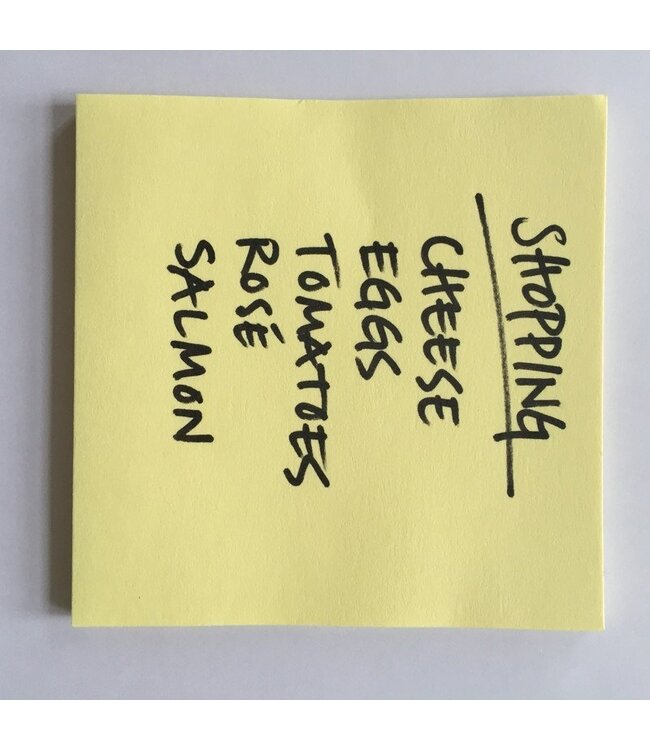 SHOPPING
CHEESE
EGGS
TOMATOES
ROSÉ
SALMON